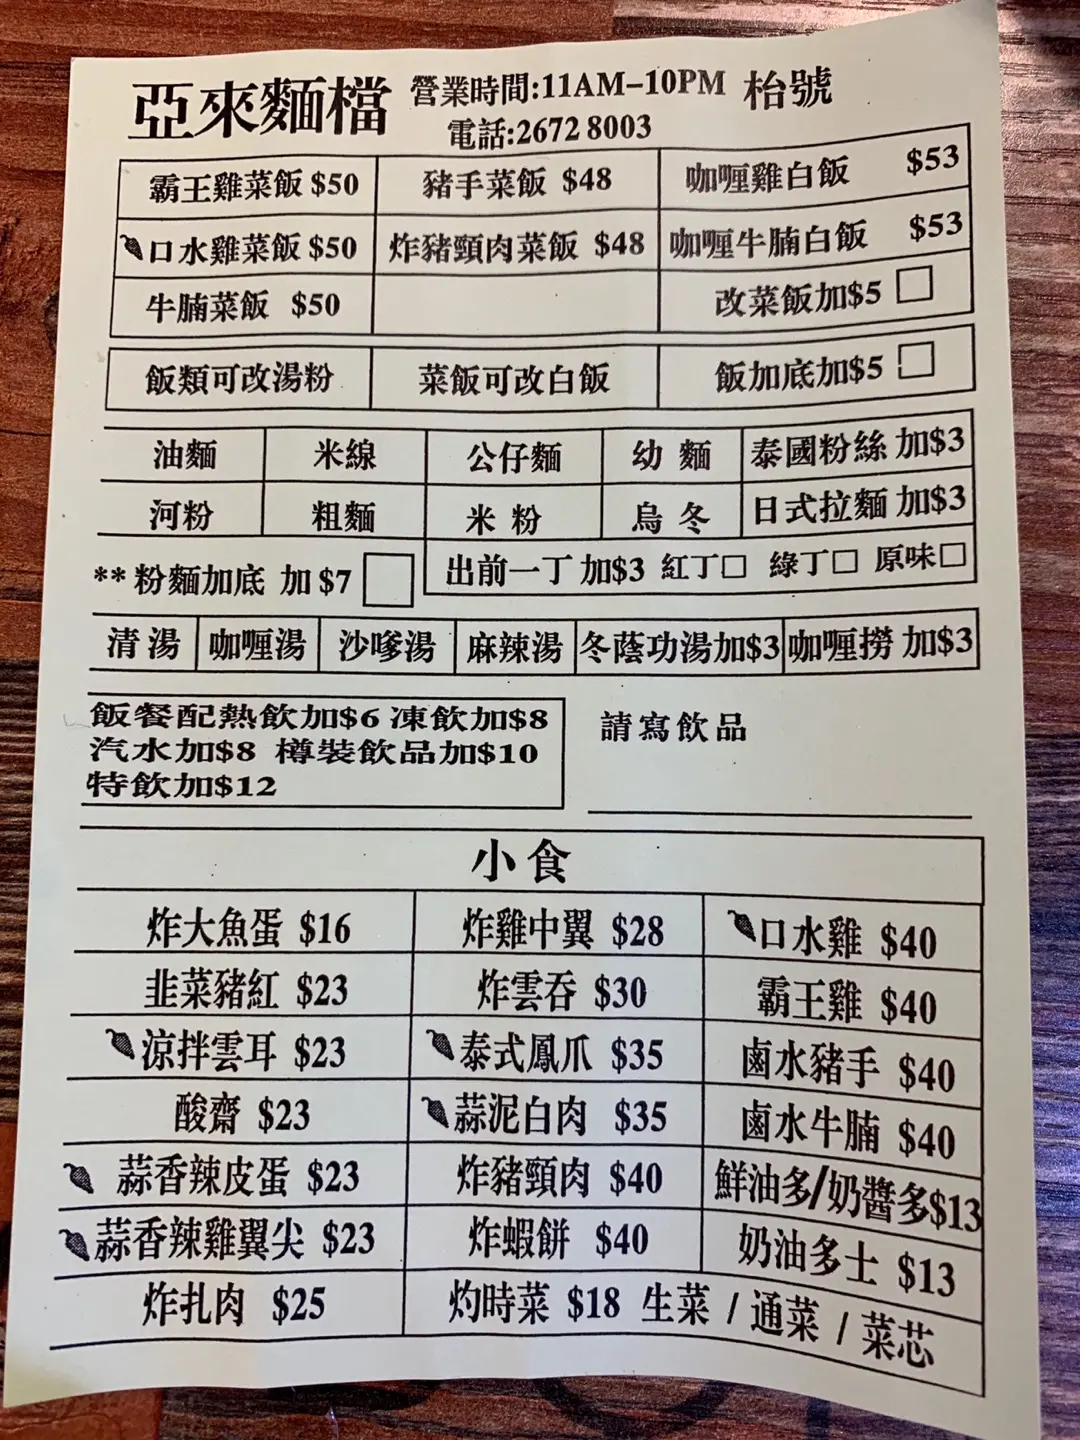 亞來麵檔 營業時間:11AM-10PM 枱號
電話:2672 8003
霸王雞菜飯 $50 豬手菜飯 $48 咖喱雞白飯 $53
口水雞菜飯 $50 炸豬頸肉菜飯 $48 咖喱牛腩白飯 $53
牛腩菜飯 $50 改菜飯加$5 □
飯類可改湯粉 菜飯可改白飯 飯加底加$5 □
油麵 米線 公仔麵 幼麵 泰國粉絲 加$3
河粉 粗麵 米粉 烏冬 日式拉麵 加$3
**粉麵加底 加$7 □ 出前一丁加$3 紅丁□ 綠丁□ 原味□
清湯 咖喱湯 沙嗲湯 麻辣湯 冬蔭功湯加$3 咖喱撈 加$3
飯餐配熱飲加$6 凍飲加$8 請寫飲品
汽水加$8 樽裝飲品加$10
特飲加$12
小食
炸大魚蛋 $16 炸雞中翼 $28 口水雞 $40
韭菜豬紅 $23 炸雲吞 $30 霸王雞 $40
涼拌雲耳 $23 泰式鳳爪 $35 鹵水豬手 $40
酸齋 $23 蒜泥白肉 $35 鹵水牛腩 $40
蒜香辣皮蛋 $23 炸豬頸肉 $40 鮮油多/奶醬多$13
蒜香辣雞翼尖 $23 炸蝦餅 $40 奶油多士 $13
炸扎肉 $25 灼時菜 $18 生菜 / 通菜 / 菜芯